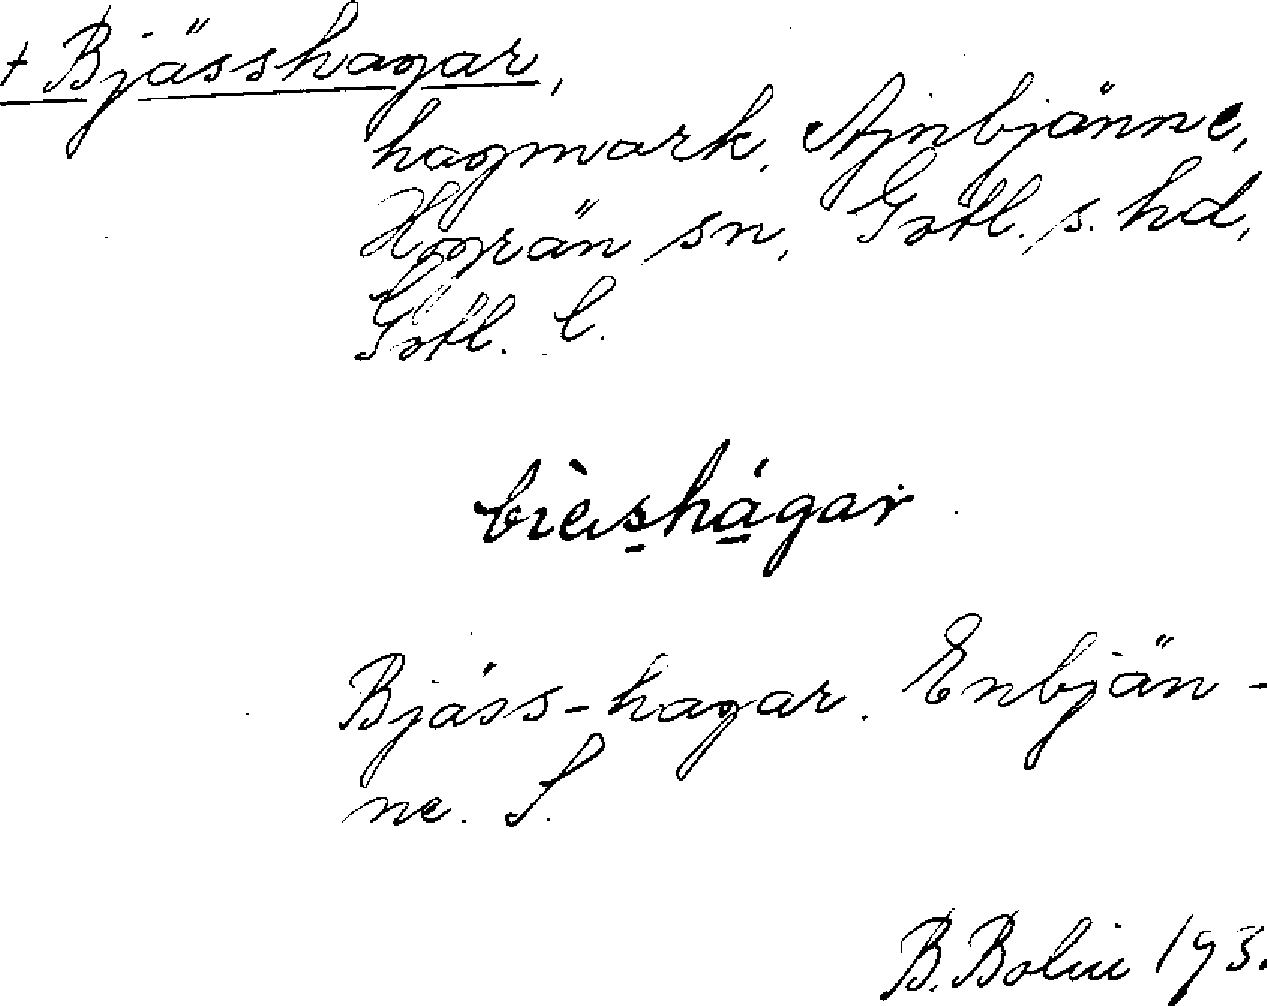 + Bjässhagar,
hagmark, Ajnbjänne,
Hogrän sn, Gotl. s. hd,
Gotl. l.
bìɛshágar
Bjäss-hagar. Enbjän-
ne. S.
B. Bolin 193.